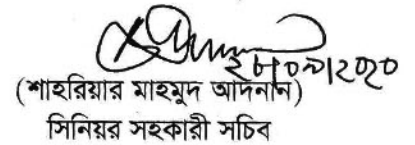 ২৮।০৯।২০২০
(শাহরিয়ার মাহমুদ আদনান)
সিনিয়র সহকারী সচিব